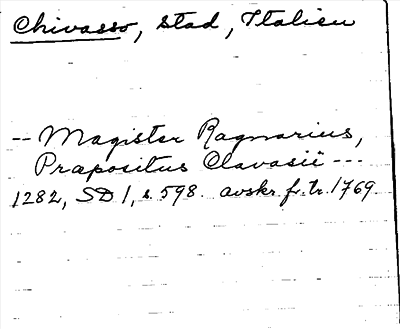 Chivasso, stad, Italien
-- Magister Ragnarius,
Præpositus Clavasii ---
1282, SD 1, s. 598. avskr. fr. tr. 1769.